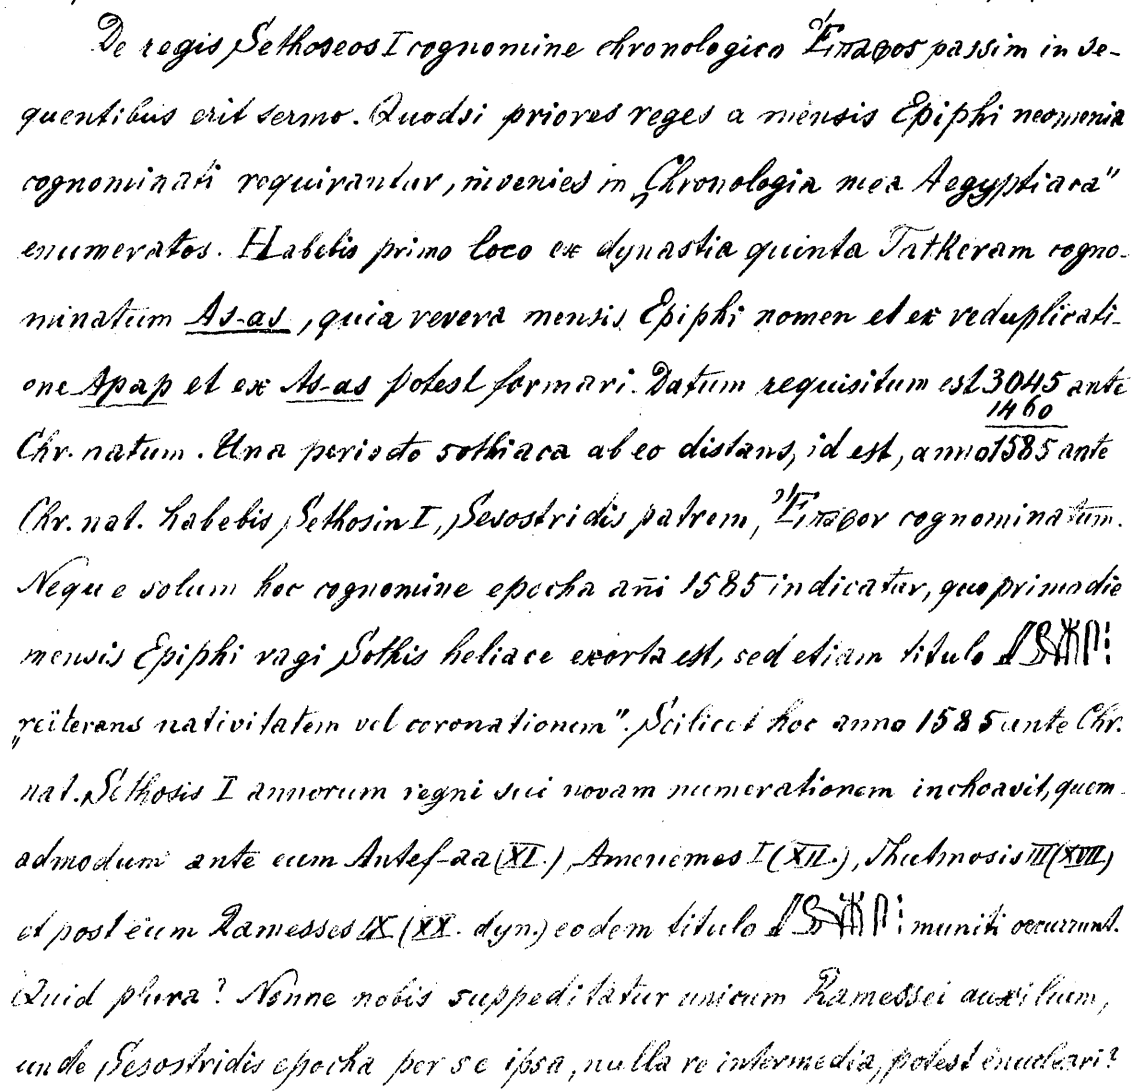 De regis Sethoseos I cognomine chronologico Ἔπαφος passim in se-
quentibus erit sermo. Quodsi priores reges a mensis Epiphi neomenia
cognominati requirantur, invenies in „Chronologia mea Aegyptiaca"
enumeratos. Habebis primo loco ex dynastia quinta Tatkeram cogno-
minatum As-as, quia revera mensis Epiphi nomen et ex reduplicati-
one Apap et ex As-as potest formari. Datum requisitum est 3045 ante
1460
Chr. natum. Una periodo sothiaca ab eo distans, id est, anno 1585 ante
Chr. nat. habebis Sethosin I, Sesostridis patrem, Ἔπαφον cognominatum.
Neque solum hoc cognomine epocha añi 1585 indicatur, quo prima die
mensis Epiphi vagi Sothis heliace exorta est, sed etiam titulo
„reïterans nativitatem vel coronationem". Scilicet hoc anno 1585 ante Chr.
nat. Sethosis I annorum regni sui novam numerationem inchoavit, quem-
admodum ante eum Antef-aa (XI.), Amenemes I (XII.), Thutmosis III (XVII)
et post eum Ramesses IX (XX. dyn.) eodem titulo muniti occurrunt.
Quid plura? Nonne nobis suppeditatur unicum Ramessei auxilium,
unde Sesostridis epocha per se ipsa, nulla re intermedia, potest enucleari?